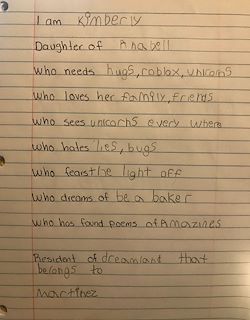 I am Kimberly
Daughter of Anabell
Who needs hugs, roblox, unicorns
Who loves her family, frends
Who sees unicorns every where
who hates lies, bugs
Who fears the light off
Who dreams of be a baker
Who has found poems of Amazines
Resident of dreamland that
belongs to
Martinez